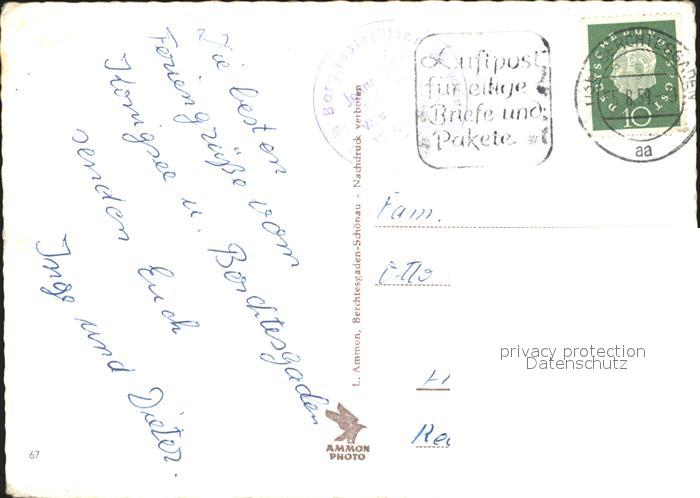 Die besten
Feriengrüße vom
Königsee u. Berchtesgaden
senden Euch
Inge und Dieter.
Luftpost
für eilige
Briefe und
Pakete
DEUTSCHE BUNDESPOST
10
aa
L. Ammon, Berchtesgaden-Schönau - Nachdruck verboten
Fam.
Otto
privacy protection
Datenschutz
AMMON
PHOTO
67